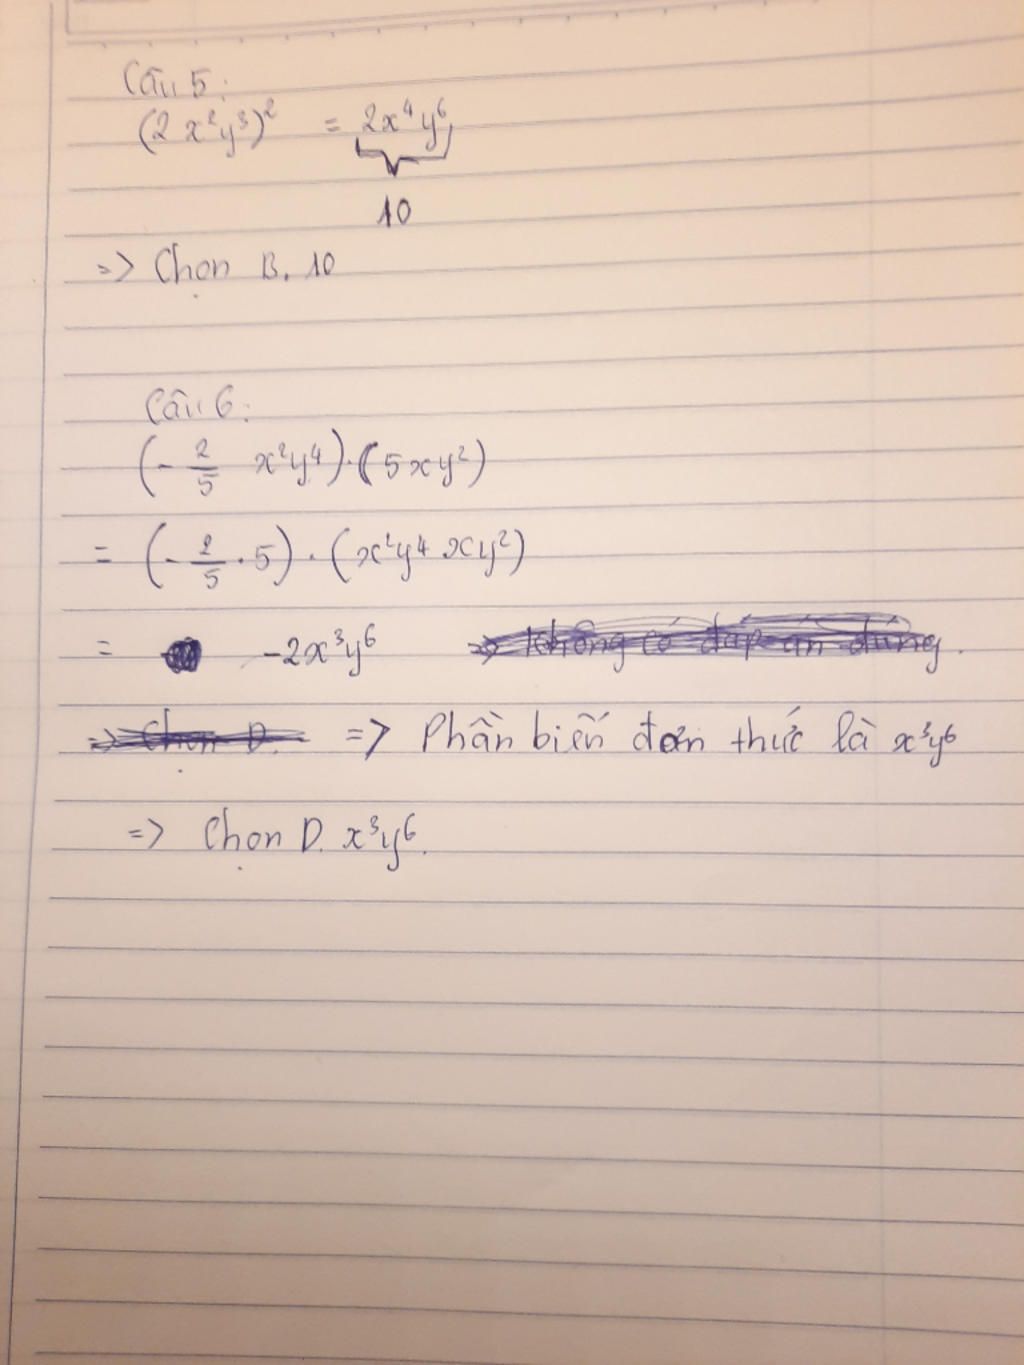 Câu 5:
(2 x²y³)² = 2x⁴y⁶
10
=> Chọn B. 10
Câu 6:
(- 2/5 x²y⁴).(5xy²)
= (- 2/5 . 5) . (x²y⁴ xy²)
= -2x³y⁶ => Không có đáp án đúng.
=> Chọn D. => Phần biến đơn thức là x³y⁶
=> Chọn D. x³y⁶.